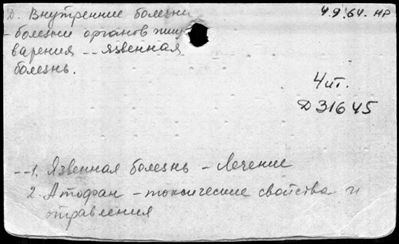 D. Внутренние болезни
4.9.64. НР
- болезни органов пище
варения -- язвенная
болезнь.
4ит.
D31645
--1. Язвенная болезнь - Лечение
2. Атофан - токсические свойства и
отравления